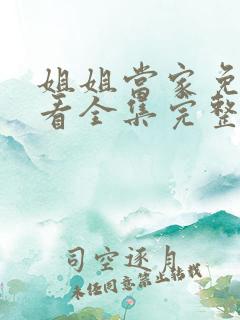 姐姐當家免
看全集完整
司空逐月
未经同意禁止转载